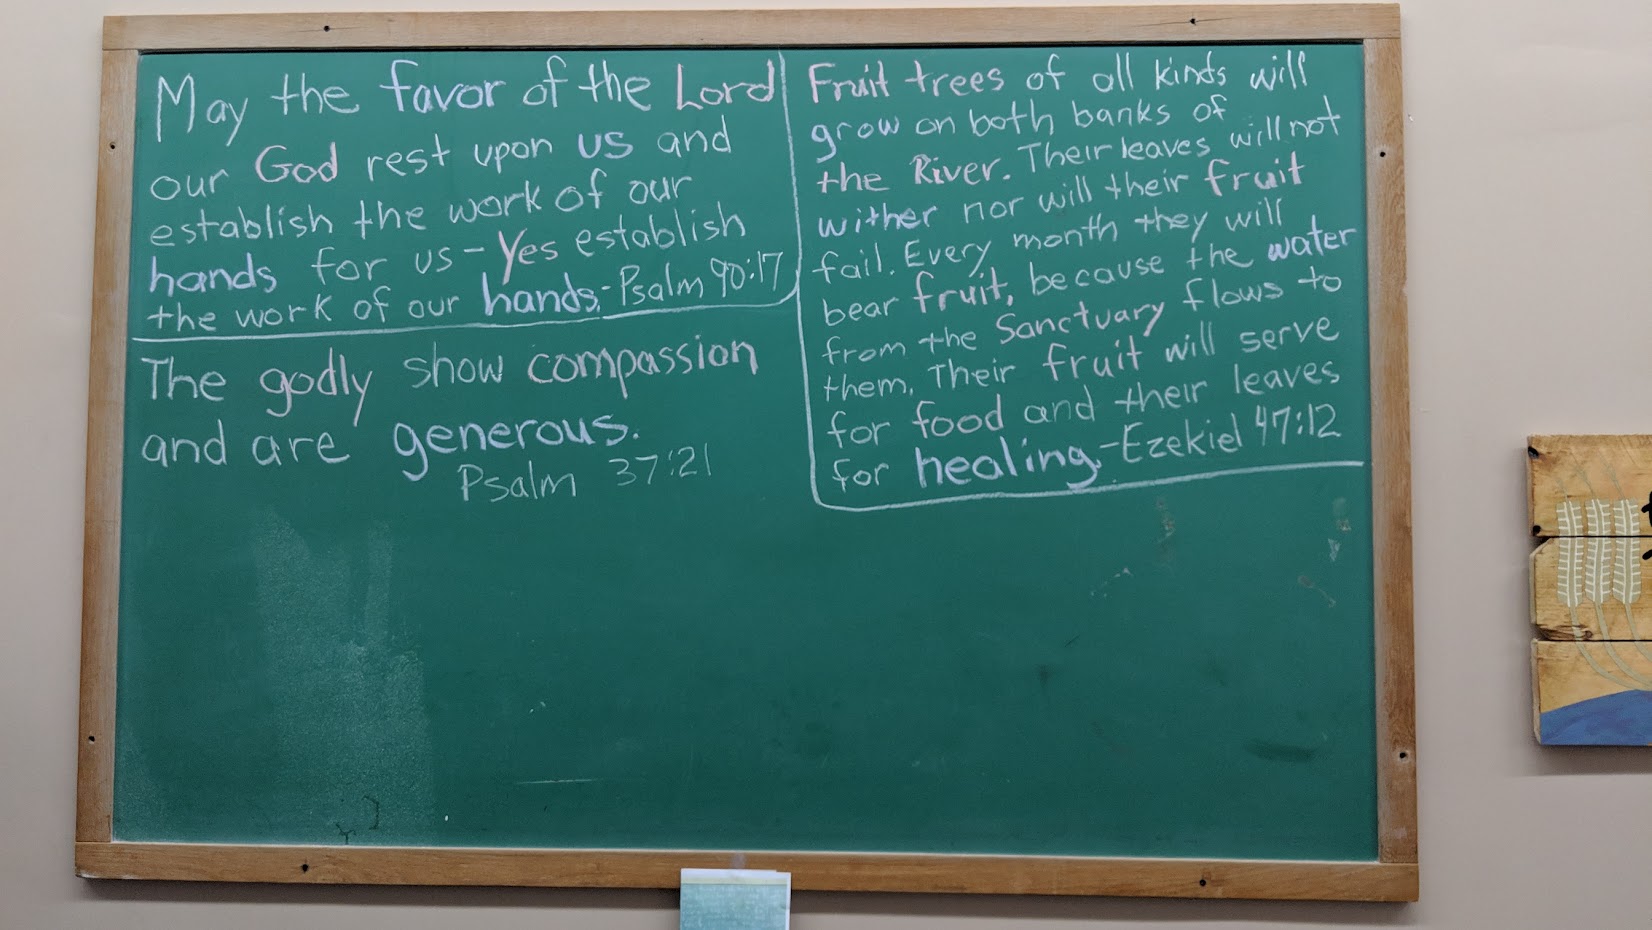 May the favor of the Lord
our God rest upon us and
establish the work of our
hands for us - Yes establish
the work of our hands. - Psalm 90:17
The godly show compassion
and are generous.
Psalm 37:21
Fruit trees of all kinds will
grow on both banks of
the River. Their leaves will not
wither nor will their fruit
fail. Every month they will
bear fruit, because the water
from the Sanctuary flows to
them. Their fruit will serve
for food and their leaves
for healing. - Ezekiel 47:12